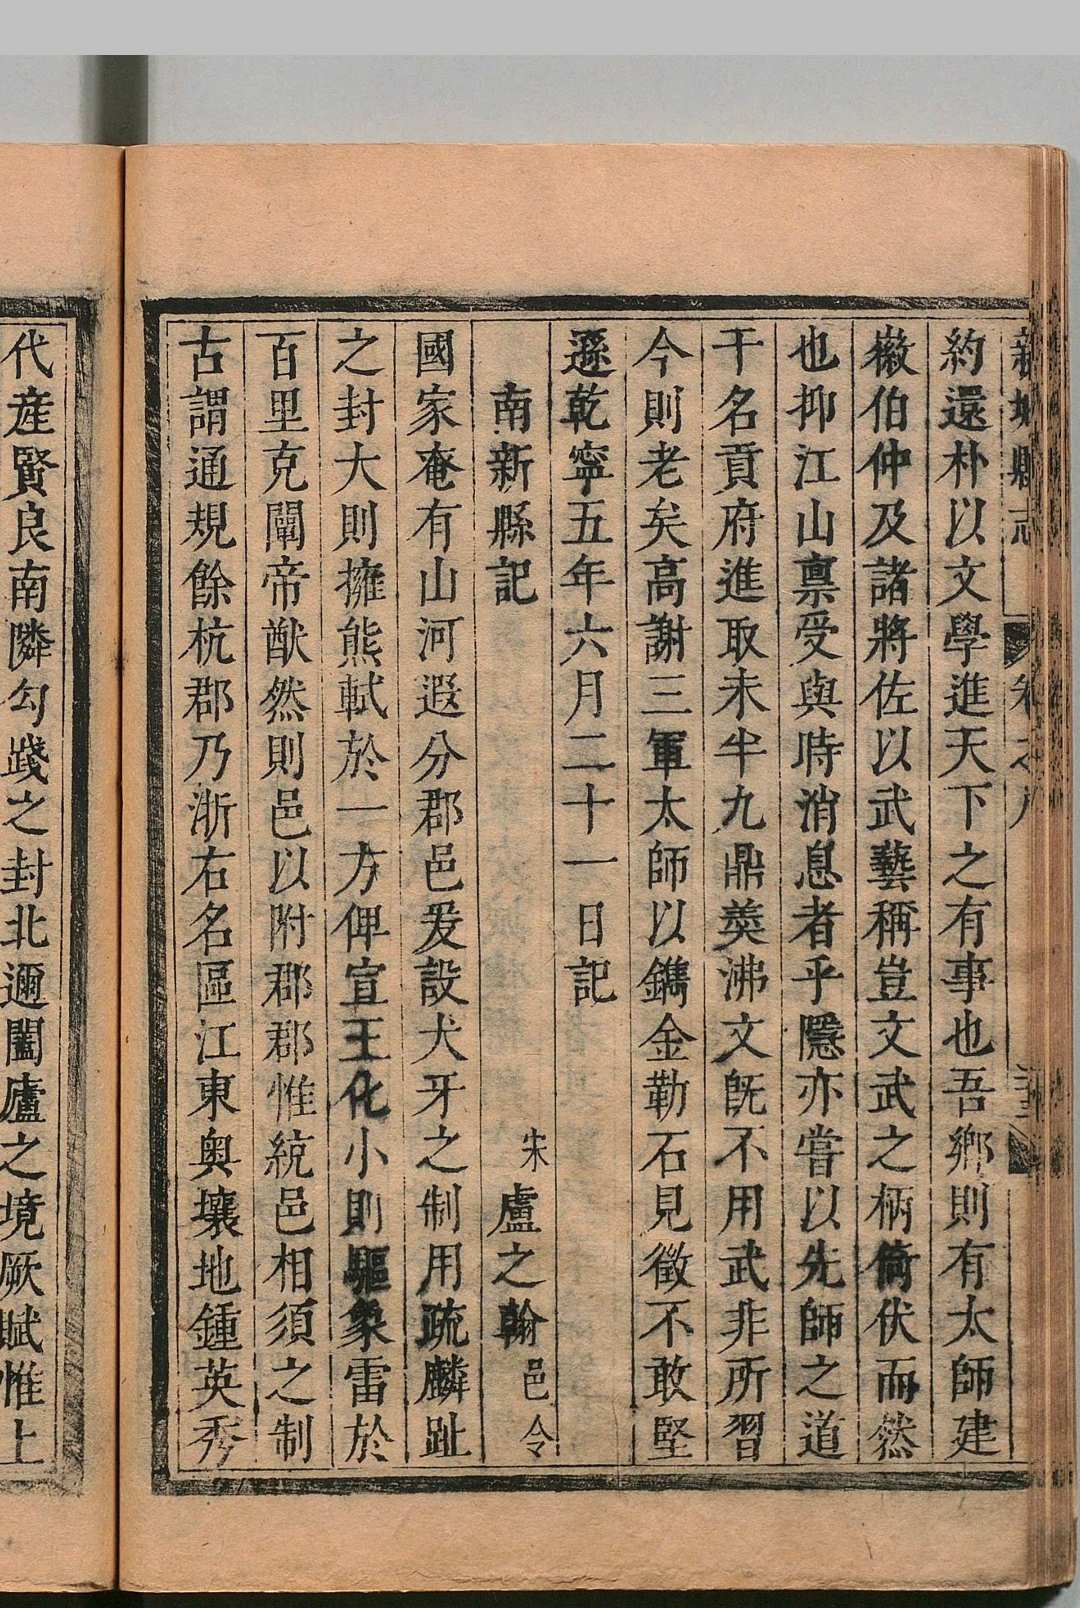 新城縣志 卷之八
約還朴以文學進天下之有事也吾鄉則有太師建
徽伯仲及諸將佐以武藝稱豈文武之柄倚伏而然
也抑江山禀受與時消息者乎隱亦嘗以先師之道
干名貢府進取未半九鼎羮沸文旣不用武非所習
今則老矣高謝三軍太師以鐫金勒石見徵不敢堅
遜乾寧五年六月二十一日記
南新縣記 宋 盧之翰 邑令
國家奄有山河遐分郡邑爰設犬牙之制用疏麟趾
之封大則擁熊軾於一方俾宣王化小則驅象雷於
百里克闡帝猷然則邑以附郡郡惟統邑相須之制
古謂通規餘杭郡乃浙右名區江東奥壤地鍾英秀
代産賢良南隣勾踐之封北邇闔廬之境厥賦惟上